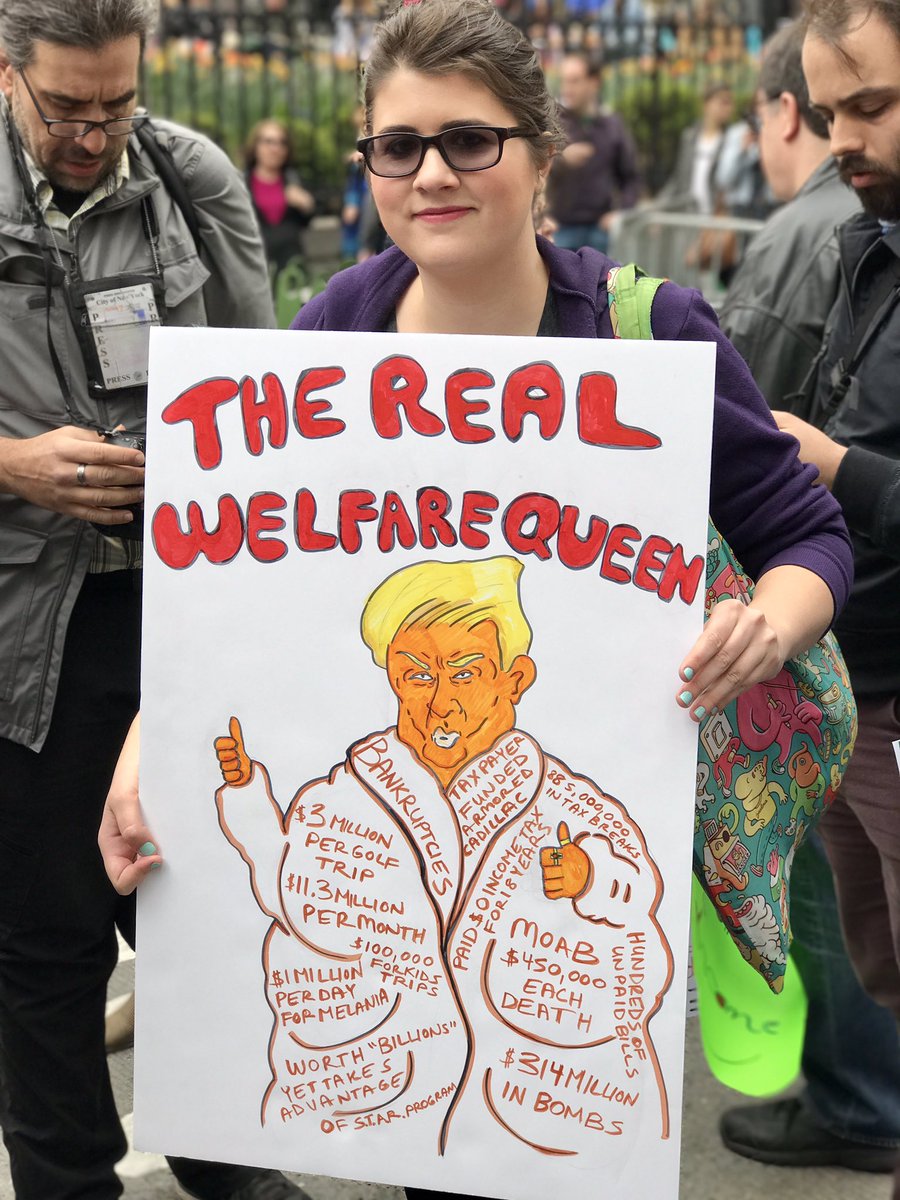 THE REAL
WELFARE QUEEN
BANKRUPTCIES
TAXPAYER
FUNDED
ARMORED
CADILLAC
885,000,000
IN TAX BREAKS
$3 MILLION
PER GOLF
TRIP
$11.3 MILLION
PER MONTH
$100,000
FOR KIDS
TRIPS
$1 MILLION
PER DAY
FOR MELANIA
WORTH "BILLIONS"
YET TAKES
ADVANTAGE
OF S.T.A.R. PROGRAM
PAID $0 INCOME TAX
FOR 18 YEARS
MOAB
$450,000
EACH
DEATH
HUNDREDS OF
UNPAID BILLS
$314 MILLION
IN BOMBS
City of New York
PRESS
PRESS
PRESS